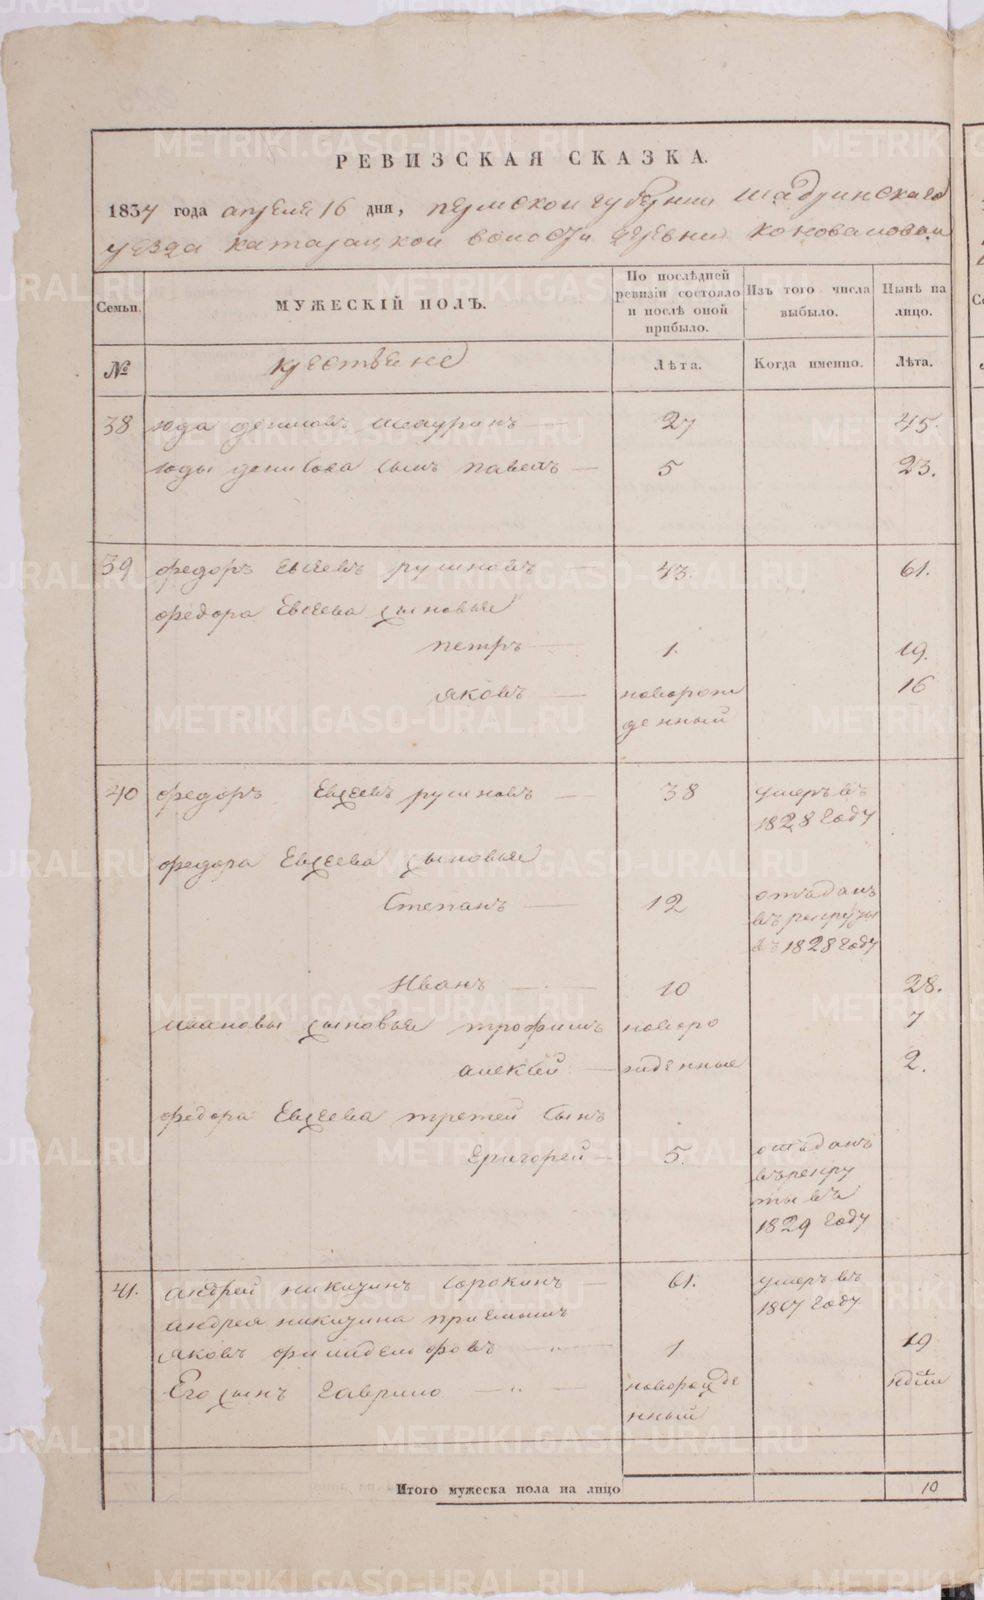 РЕВИЗСКАЯ СКАЗКА.
1834 года апреля 16 дня, пермской губернии шадринскаго
уезда катарацкой волости деревни коноваловой
Семьи. МУЖЕСКІЙ ПОЛЪ. По послѣдней ревизіи состояло и послѣ оной прибыло. Изъ того числа выбыло. Нынѣ на лицо.
№ крестьяне Лѣта. Когда именно. Лѣта.
38 юда денисовъ шауринъ 27 45.
юды денисова сынъ павелъ 5 23.
39 федоръ Евсеевъ русиновъ 43. 61.
федора Евсеева сыновья
петръ 1. 19.
яковъ новорож 16
денный
40 федоръ Евсеевъ русиновъ 38 умеръ въ
1828 году
федора Евсеева сыновья
Степанъ 12 отъданъ
въ рекруты
въ 1828 году
Иванъ 10 28.
ивановы сыновья трофимъ новоро 7
алексей жденные 2.
федора Евсеева третей сынъ
Григорей 5. отъданъ
въ рекру
ты въ
1829 году
41. андрей никитинъ сорокинъ 61. умеръ въ
году
андрея никитина приемышъ
яковъ филиделфовъ 1 19
Его сынъ гаврило новорожде
нный
Итого мужеска пола на лицо 10
METRIKI.GASO-URAL.RU